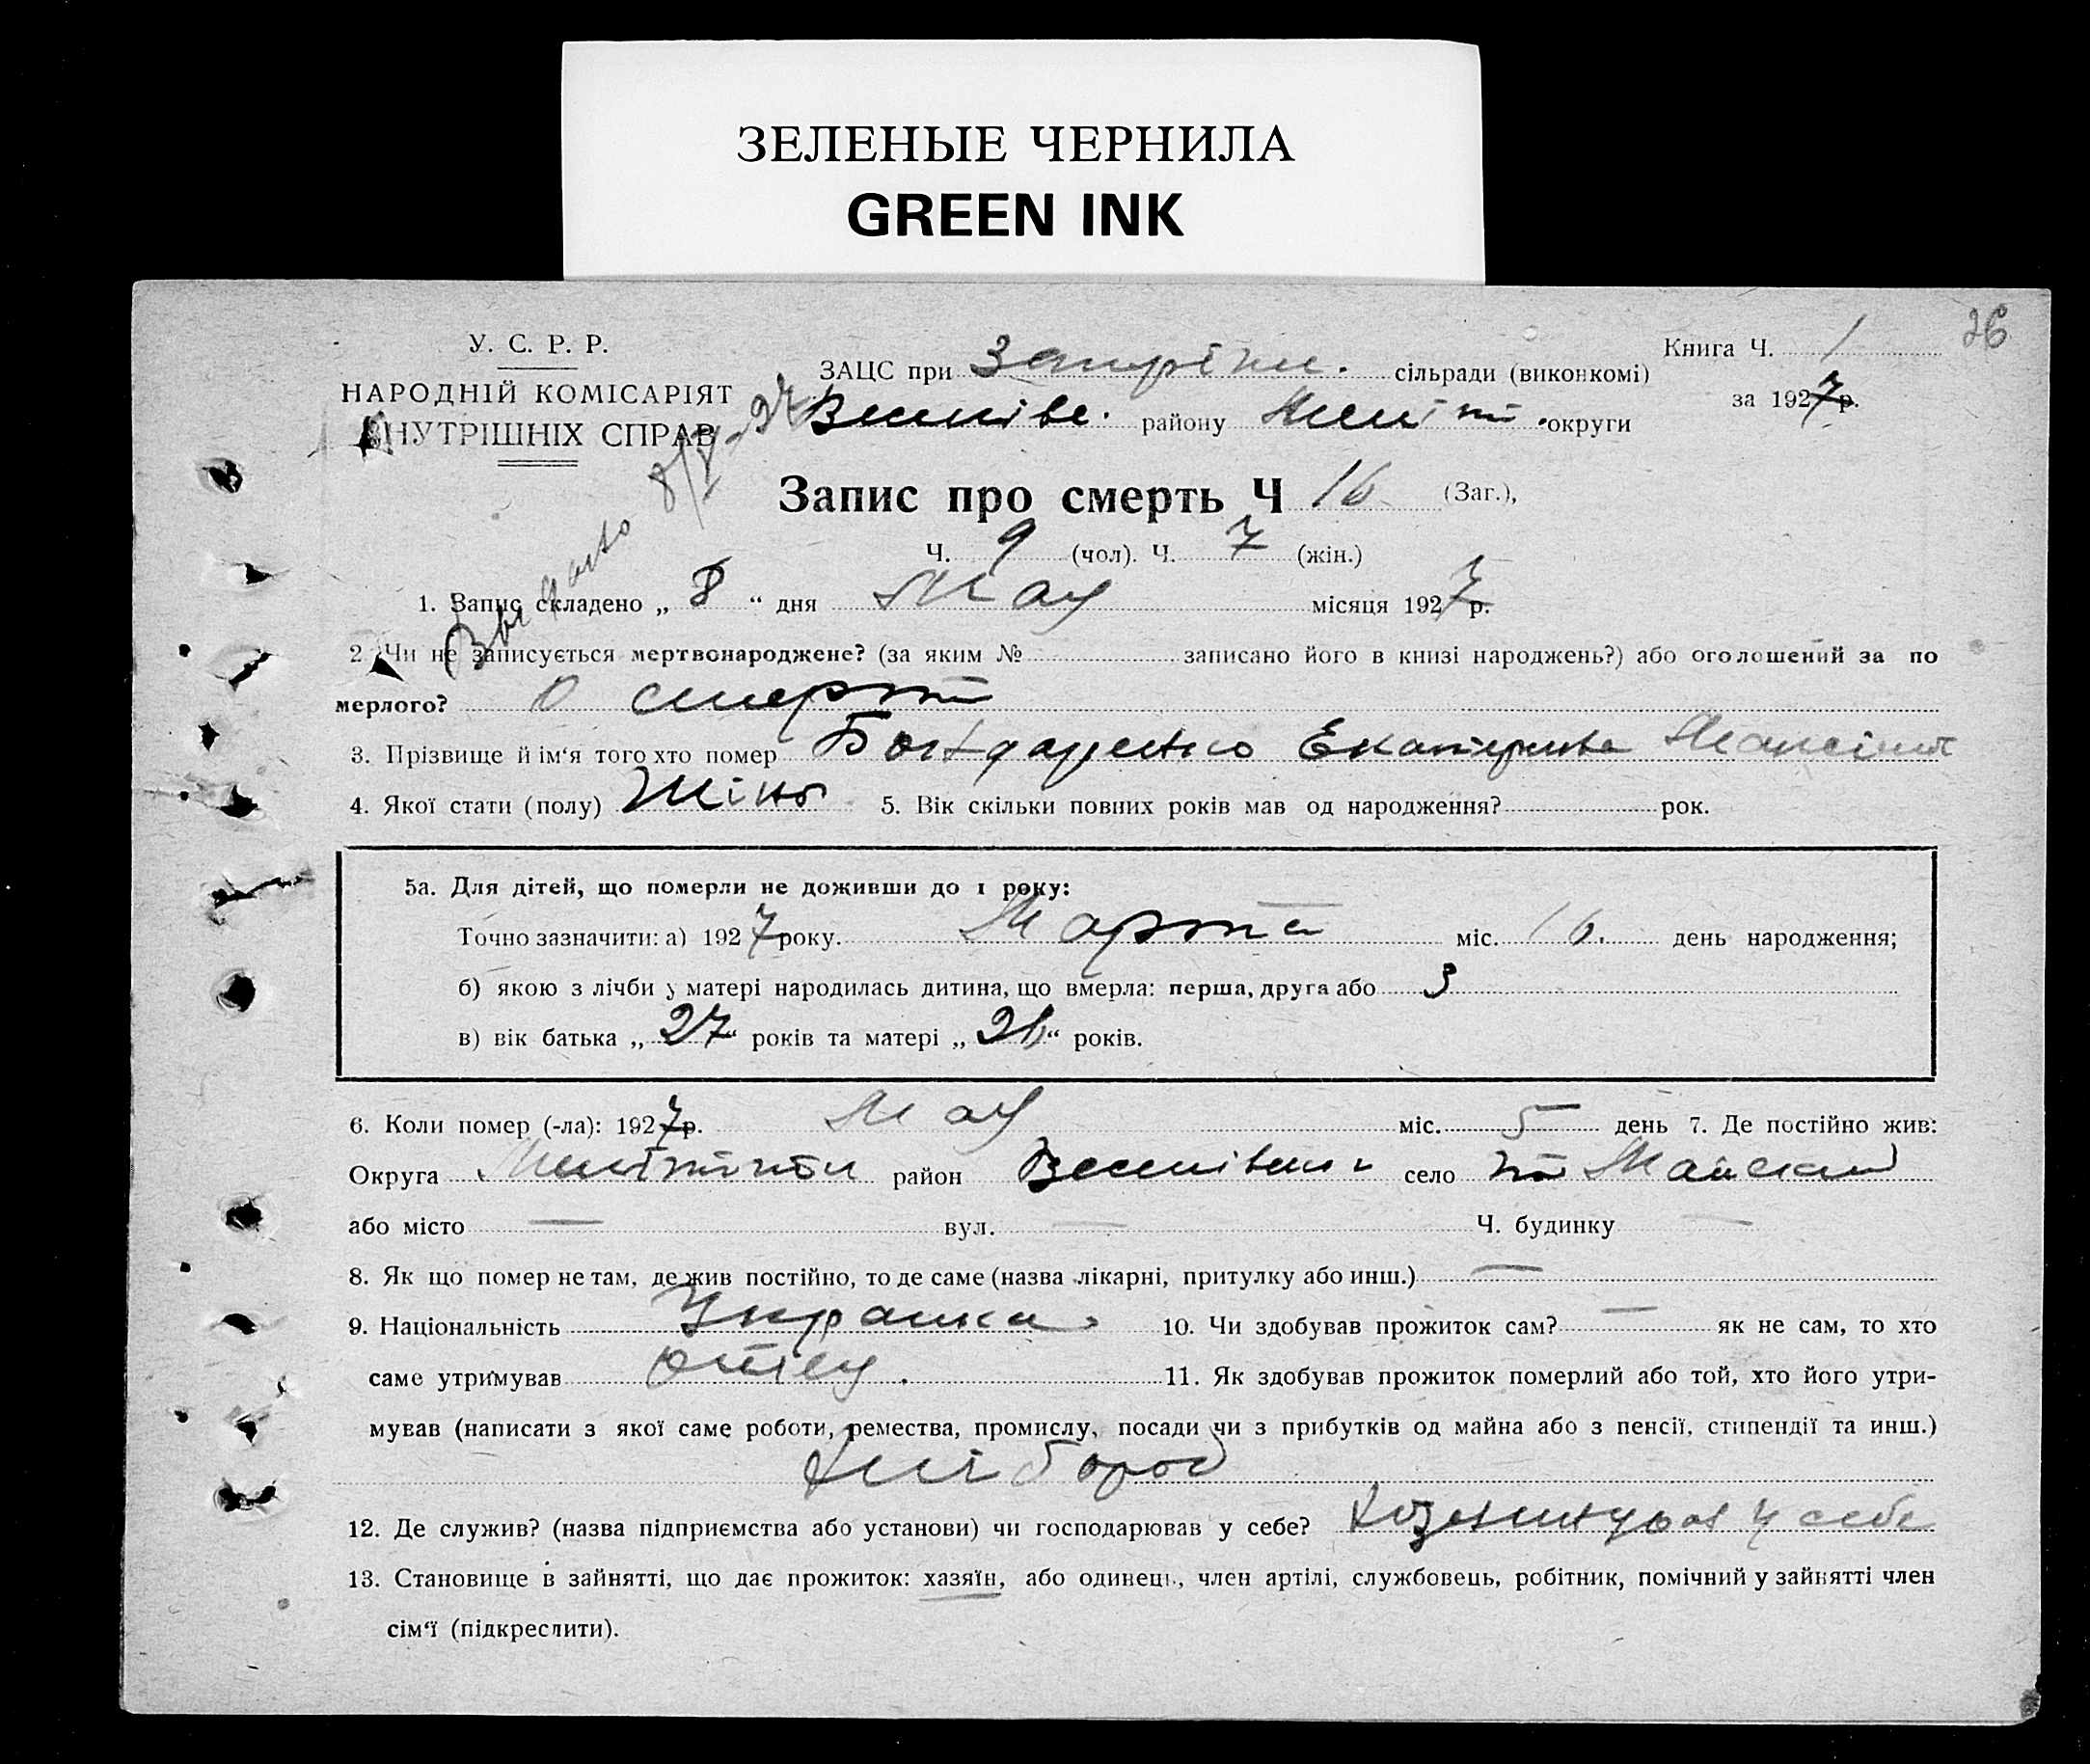 ЗЕЛЕНЫЕ ЧЕРНИЛА
GREEN INK
26
У. С. Р. Р.
НАРОДНІЙ КОМІСАРІЯТ
ВНУТРІШНІХ СПРАВ
ЗАЦС при сільради (виконкомі)
району округи
Книга Ч. 1
за 1927 р.
Запис про смерть Ч 16 (Заг.),
Ч. 9 (чол). Ч. 7 (жін.)
1. Запис складено „ 8 “ дня Мая місяця 1927 р.
2. Чи не записується мертвонароджене? (за яким № записано його в книзі народжень?) або оголошений за по
мерлого? О смерти
3. Прізвище й ім‘я того хто помер Бондаренко Екатерина
4. Якої стати (полу) 5. Вік скільки повних років мав од народження? рок.
5а. Для дітей, що померли не доживши до 1 року:
Точно зазначити: а) 1927 року. Марта міс. 16. день народження;
б) якою з лічби у матері народилась дитина, що вмерла: перша, друга або 3
в) вік батька „ 27 “ років та матері „ 26 “ років.
6. Коли помер (-ла): 1927 р. Мая міс. 5 день 7. Де постійно жив:
Округа район село
або місто — вул. — Ч. будинку —
8. Як що помер не там, де жив постійно, то де саме (назва лікарні, притулку або инш.) —
9. Національність 10. Чи здобував прожиток сам? — як не сам, то хто
саме утримував 11. Як здобував прожиток померлий або той, хто його утри-
мував (написати з якої саме роботи, ремества, промислу, посади чи з прибутків од майна або з пенсії, стипендії та инш.)
Хлібороб
12. Де служив? (назва підприємства або установи) чи господарював у себе? у себе
13. Становище в зайнятті, що дає прожиток: хазяїн, або одинець, член артілі, службовець, робітник, помічний у зайнятті член
сім‘ї (підкреслити).